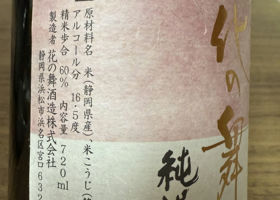 花の舞
純
原材料名 米(静岡県産)・米こうじ(
アルコール分 16.5度
精米歩合 60% 内容量 720ml
製造者 花の舞酒造株式会社
静岡県浜松市浜名区宮口632